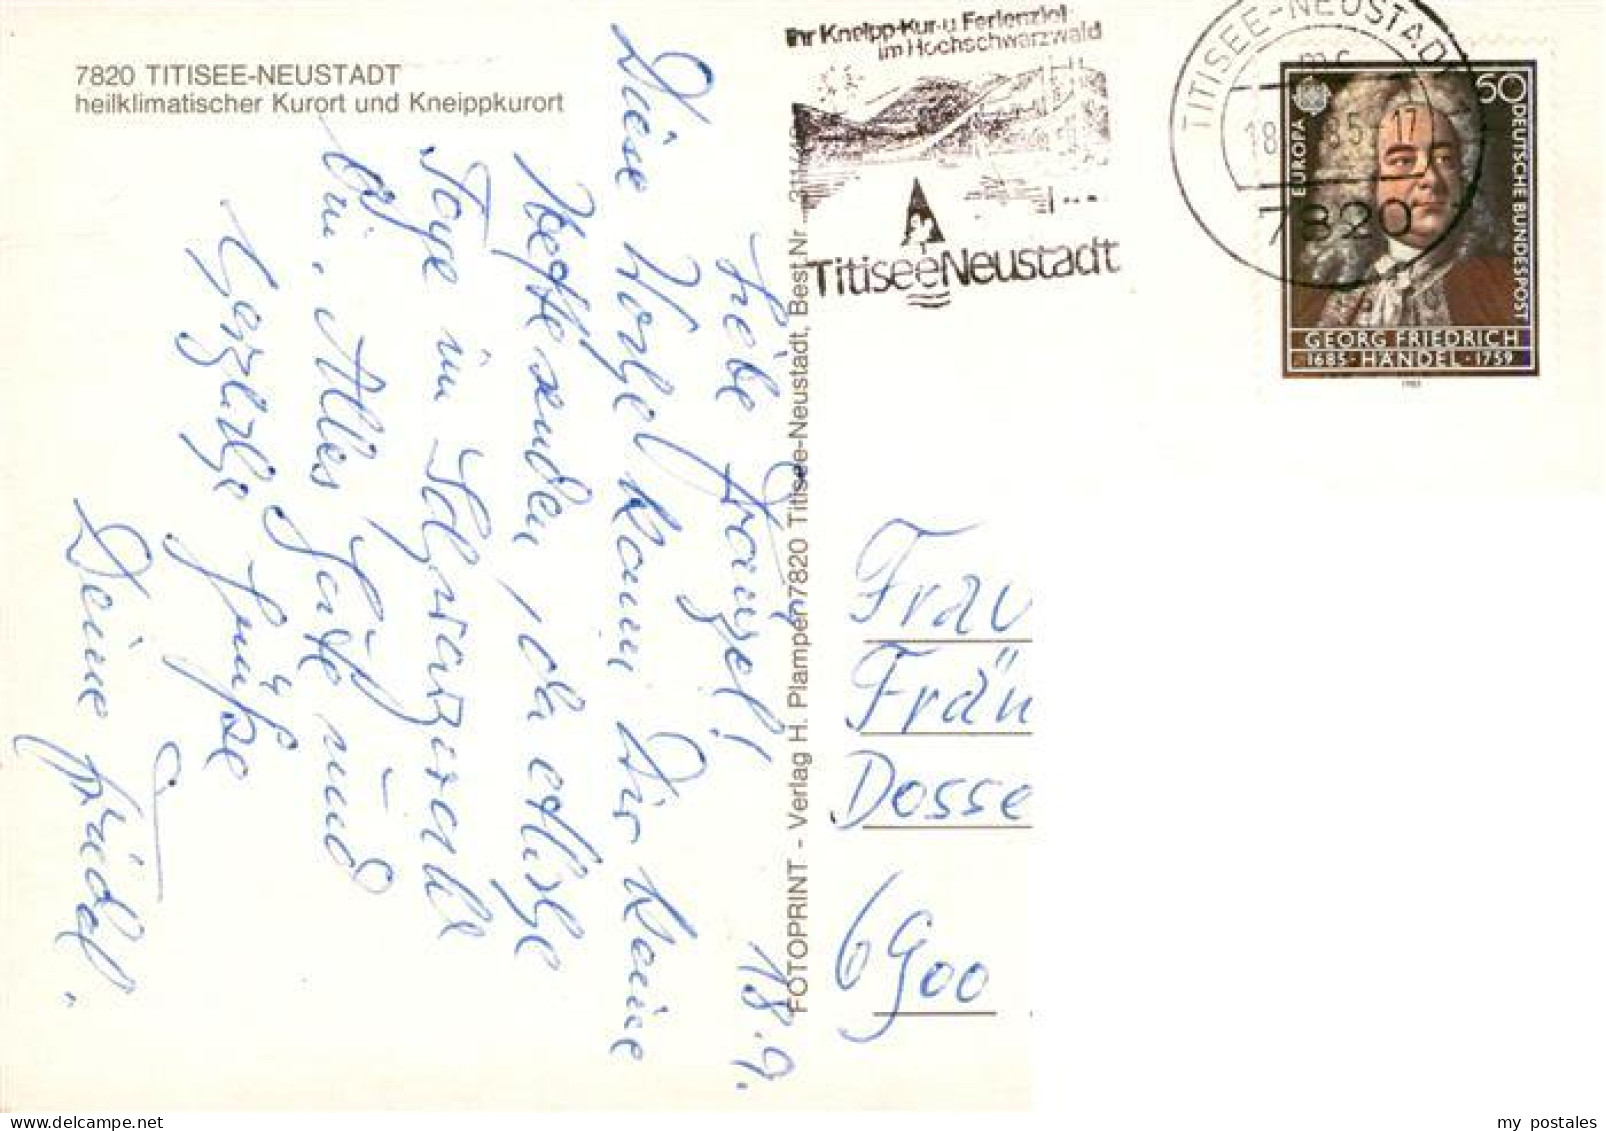 7820 TITISEE-NEUSTADT
heilklimatischer Kurort und Kneippkurort
Ihr Kneipp-Kur-u Ferienziel
im Hochschwarzwald
Titisee Neustadt
TITISEE-NEUSTADT
18 85-17
7820
50
EUROPA
DEUTSCHE BUNDESPOST
GEORG FRIEDRICH
1685·HÄNDEL·1759
1985
FOTOPRINT - Verlag H. Plampert 7820 Titisee-Neustadt, Best.Nr. 311/
18.9.
Liebe Fränzel!
Diese Woche kann Dir keine
Kette senden, da etliche
Tage im Schwarzwald
bin. Alles Gute und
Herzliche Grüße
Deine Friedel.
Frau
Frän
Dosse
6900
my postales